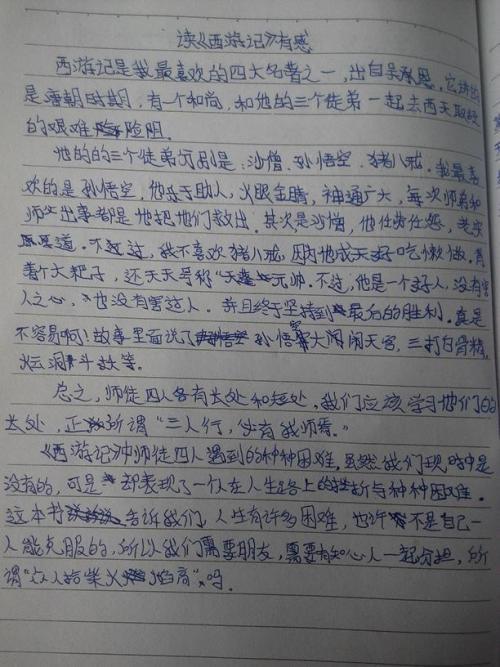 读《西游记》有感
西游记是我最喜欢的四大名著之一,出自吴承恩,它讲的
是唐朝时期,有一个和尚,和他的三个徒弟一起去西天取经
的艰难险阻。
他的的三个徒弟分别是:沙僧、孙悟空、猪八戒。我最喜
欢的是孙悟空,他乐于助人,火眼金睛,神通广大,每次师弟和
师父出事都是他把他们救出。其次是沙僧,他任劳任怨,老实
厚道。不过,我不喜欢猪八戒,因为他成天好吃懒做。
着个大耙子,还天天号称“天蓬元帅。不过,他是一个好人,没有害
人之心,也没有害过人。并且终于坚持到最后的胜利。真是
不容易啊!故事里面说了孙悟空大闹闹天宫,三打白骨精,
火云洞斗妖等。
总之,师徒四人各有长处和短处,我们应该学习他们的
长处,正所谓“三人行,必有我师焉。”
《西游记》中师徒四人遇到的种种困难,虽然我们现时中是
没有的,可是却表现了一个人在人生路上的挫折与种种困难。
这本书告诉我们,人生有许多困难,也许不是自己一
人能克服的,所以我们需要朋友,需要有知心人一起分担,所
谓“众人拾柴火焰高”,吗。